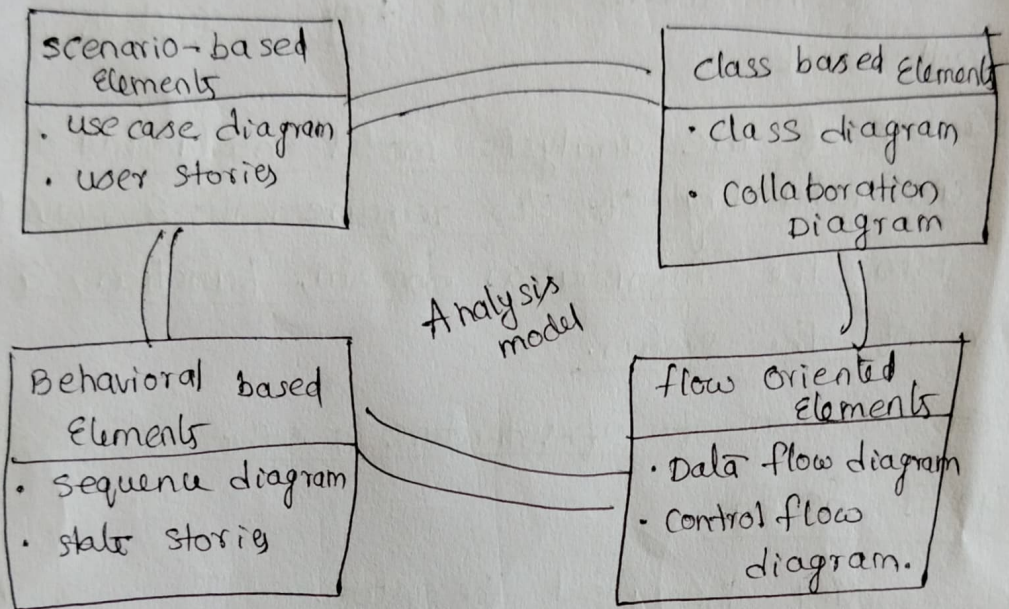 scenario-based
Elements
. use case diagram
. user stories
class based Elements
• class diagram
• collaboration
Diagram
Analysis
model
Behavioral based
Elements
• sequence diagram
• state stories
flow oriented
Elements
• Data flow diagram
• control flow
diagram.